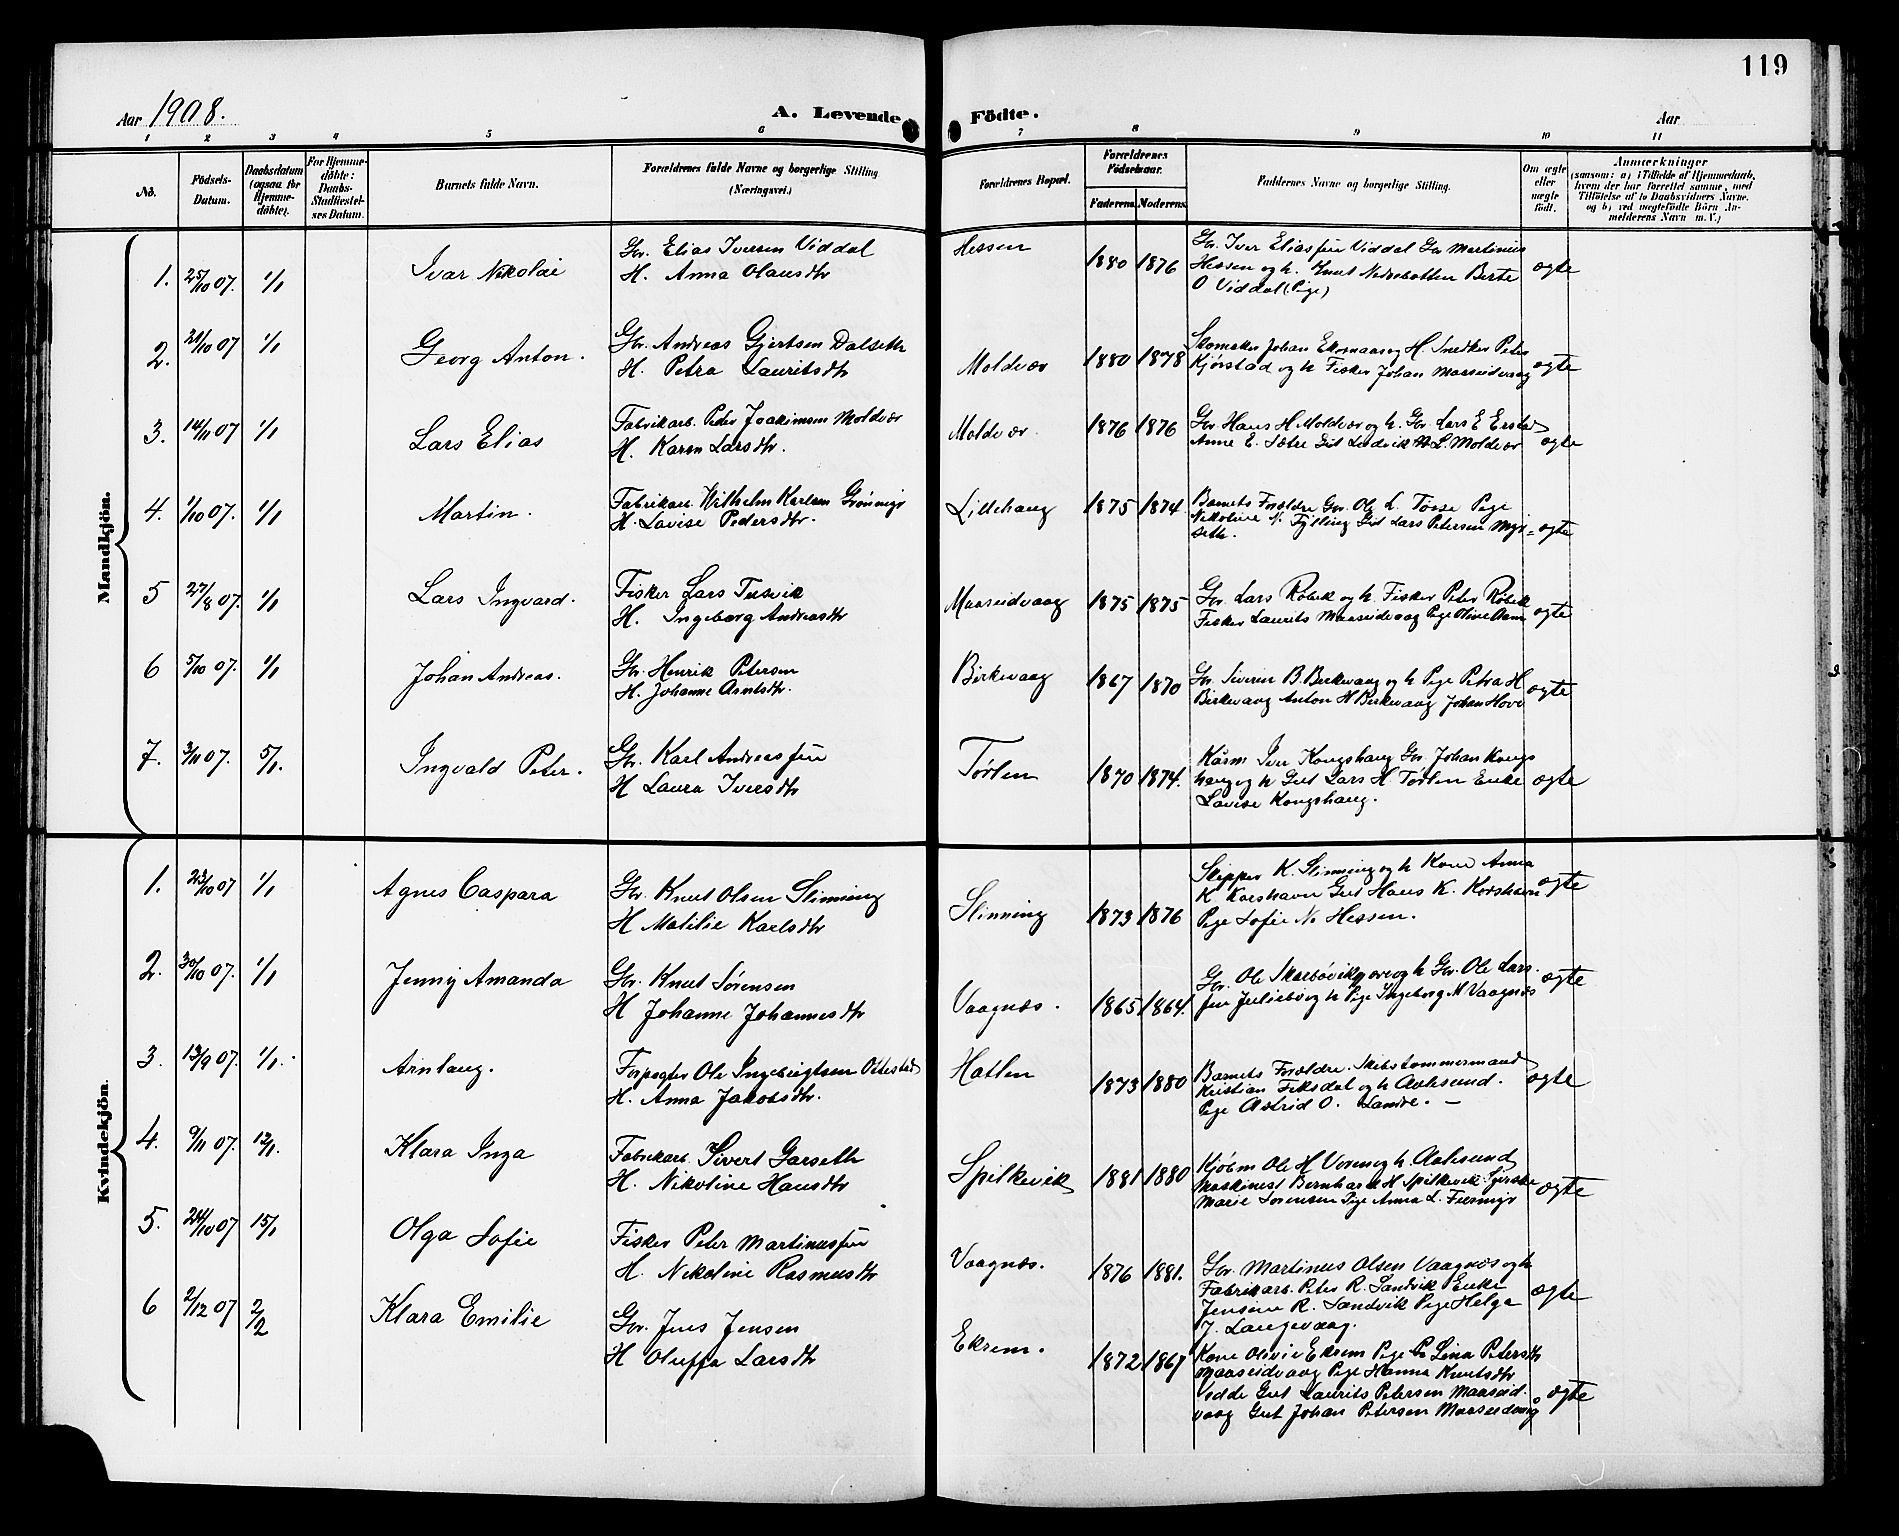 119
Aar 1908.
A. Levende Födte.
Aar
1 2 3 4 5 6 7 8 9 10 11
No.
Födsels-Datum.
Daabsdatum (ogsaa for Hjemme-döbte).
For Hjemme-döbte: Daabs-Stadfæstel-ses Datum.
Barnets fulde Navn.
Forældrenes fulde Navne og borgerlige Stilling (Næringsvei.)
Forældrenes Bopæl.
Forældrenes Födselsaar.
Faderens.
Moderens.
Faddernes Navne og borgerlige Stilling.
Om ægte eller uægte födt.
Anmærkninger
(saasom: a) i Tilfælde af Hjemmedaab,
hvem der har forrettet samme, med
Tilföielse af to Daabsvidners Navne,
og b) ved uægtefödte Börn An-
melderens Navn m. V.)
Mandkjön.
1. 25/10 07. 1/1 Ivar Nikolai
Gr. Elias Iversen Viddal
H. Anna Olausdtr
Hessen 1880 1876
Gr. Iver Eliassen Viddal Gr Martinus
Hessen og h. Knut Nedrebotten Berte
O Viddal (Pige)
ægte
2. 20/10 07 1/1 Georg Anton.
Gr. Andreas Gjertsen Dalseth
H. Petra Lauritsdtr
Moldvær 1880 1878
Skomaker Johan Ekornaas og H. Snedker Peter
Kjørstad og h Fisker Johan Maaseidvaag
ægte
3. 14/11 07 1/1 Lars Elias
Fabrikarb. Peder Joakimsen Moldvær
H. Karen Larsdtr.
Moldvær. 1876 1876
Gr Hans H Moldvær og h. Gr. Lars E Erstad
Anne E. Sætre Gut Ludvik L. Moldvær
ægte
4. 1/10 07. 1/1 Martin.
Fabrikarb Wilhelm Karlsen Grønmyr
H. Lovise Pedersdtr.
Lillehaug 1875 1874
Barnets Forældre Gr. Ole L. Tosse Pige
Nikoline N. Fylling Gut Lars Petersen Myr=
seth.
ægte
5 27/8 07. 1/1 Lars Ingvard.
Fisker Lars Tusvik
H. Ingeborg Andreasdtr
Maaseidvaag 1875 1875
Gr. Lars Røbek og h. Fisker Peter Røbek
Fisker Laurits Maaseidvaag Pige Oline Aam
ægte
6 5/10 07. 1/1 Johan Andreas.
Gr. Henrik Petersen
H. Johanne Arntsdtr.
Birkevaag 1867 1870
Gr. Siveren B. Birkevaag og h Pige Petra H
Birkevaag Anton H Birkevaag Johan Hove
ægte
7. 3/11 07. 5/1. Ingvald Peter.
Gr. Karl Andreassen
H Laura Iversdtr
Tørlen 1870 1874.
Kårm Iver Kongshaug Gr. Johan Kongs
haug og h Gut Lars H Torlen Enke
Lovise Kongshaug.
ægte
Kvindekjön.
1. 23/10 07 1/1 Agnes Caspara
Gr. Knut Olsen Slinning
H Matilie Karlsdtr
Slinning 1873 1876
Skipper K. Slinning og h Kone Anna
K Korshavn Gut Hans K. Korshavn
Pige Sofie N. Hessen.
ægte
2. 30/10 07. 1/1 Jenny Amanda
Gr. Knut Sørensen
H Johanne Johannesdtr
Vaagnæs. 1865 1864.
Gr. Ole Skarbøvik og h Gr. Ole Lars-
sen Juliebø og h Pige Ingeborg M Vaagnæs
ægte
3. 13/9 07. 1/1. Arnlaug.
Forpagter Ole Ingebrigtsen Ottestad
H. Anna Jakobsdtr.
Hatlen 1873 1880
Barnets Forældre. Skibstømmermand
Kristian Fiksdal og h Aalesund.
Pige Astrid O. Lande. -
ægte
4. 9/11 07. 12/1. Klara Inga
Fabrikarb. Sivert Garseth
H. Nikoline Hansdtr
Spilkevik 1881 1880
Kjøbm Ole H Voren og h. Aalesund
Maskinist Bernhard H Spilkevik.
Marie Sørensen Pige Anna L.
ægte
5. 24/10 07 15/1 Olga Sofie
Fisker Peter Martinussen
H. Nikoline Rasmusdtr
Vaagnæs. 1876 1881.
Gr. Martinus Olsen Vaagnæs og h
Fabrikarb. Peter R. Sandvik Enke
Jensine R. Sandvik Pige Helga
J. Langevaag.
ægte
6 2/12 07 2/2 Klara Emilie
Gr. Jens Jensen
H Oluffa Larsdtr
Ekrem. 1872 1867
Kone Olivie Ekrem Pige Lina Petersdtr
Maaseidvaag Pige Hanna Knutsdtr
Vedde Gut Laurits Petersen Maaseid-
vaag Gut Johan Petersen Maaseidvåg
ægte